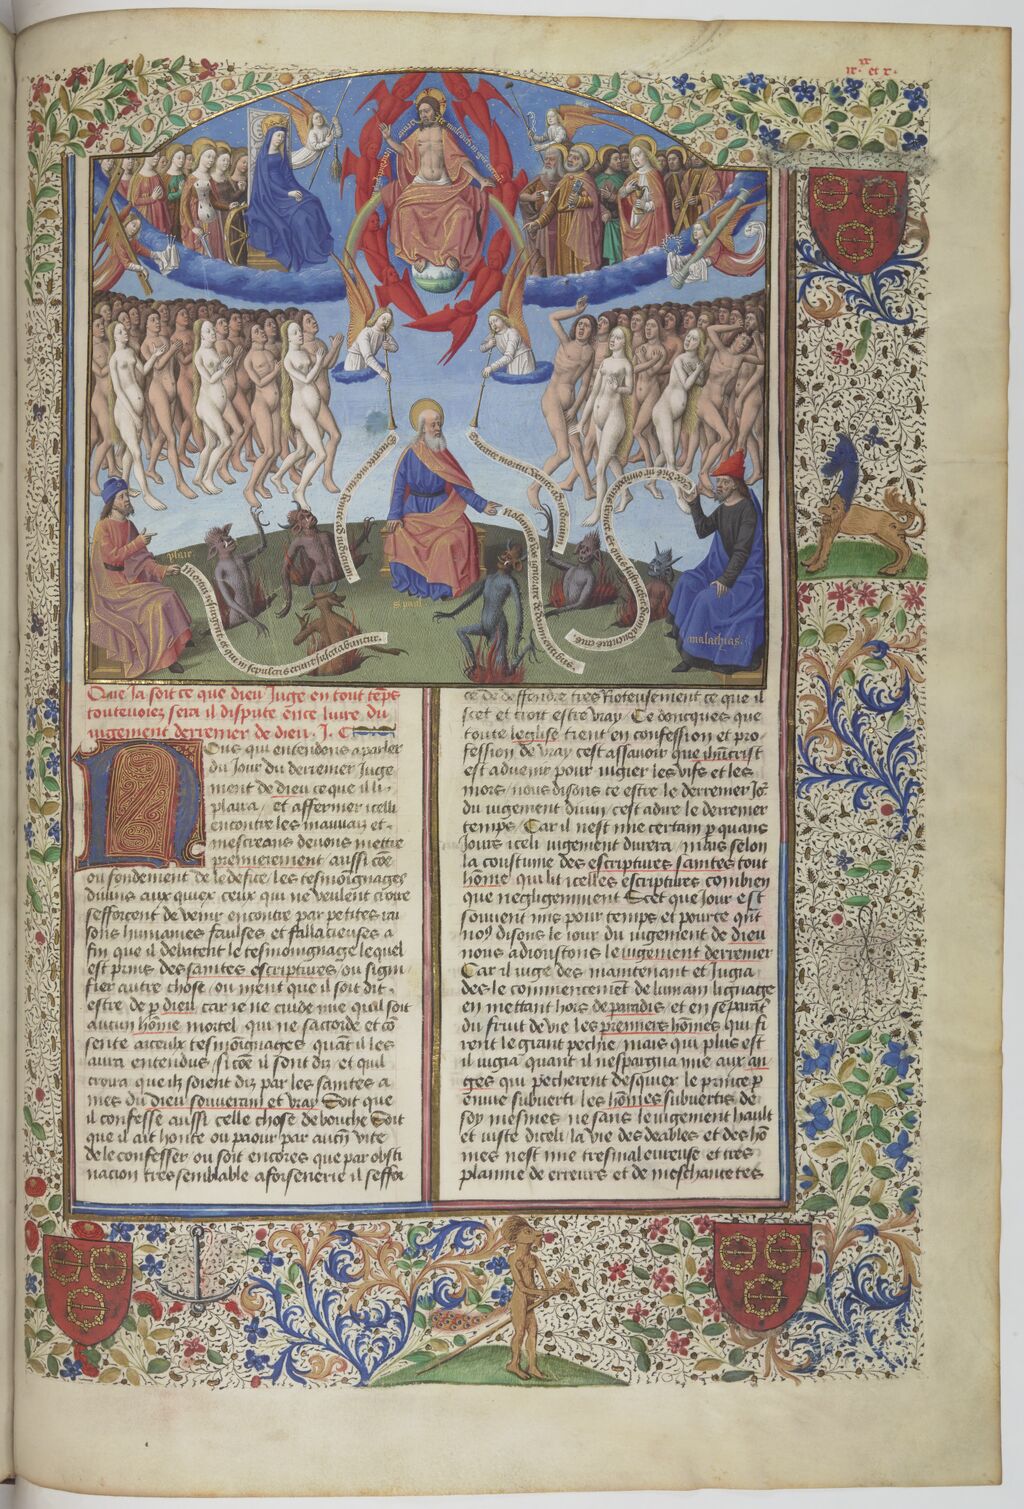 xx
ii. et x.
Venite benedicti
Ite maledicti in ignem eternum
Surgite mortui venite ad iudicium.
Surgite mortui Venite ad iudicium
ysaie.
Mortui resurgent et qui in sepulcris erant suscitabuntur.
s. paul
malachias.
Que ia soit ce que dieu iuge en tout teps
toutevoiez sera il dispute en ce livre du
iugement derrenier de dieu. .I. C
Nous qui entendons a parler
du Iour du derrenier Iuge
ment de dieu ce que il li
plaira / et affermer icelli
encontre les mauvaiz et
mescreans devons mettre
premierement aussi coe
ou fondement de ledefice / les tesmoignages
divins aux quiex ceux qui ne veulent croire
sefforcent de venir encontre par petites rai
sons humaines faulses et fallacieuses a
fin que il debatent le tesmoingnage lequel
est prins des saintes escriptures / ou signi
fier autre chose / ou nient que il soit dit
estre de p dieu car ie ne cuide mie quil soit
aucun home mortel qui ne sacorde et co
sente a iceux tesmoignages quant il les
aura entendus / si coe il sont diz et quil
croira que ilz soient diz par les saintes a
mes du dieu souverain et vray Soit que
il confesse aussi celle chose de bouche Soit
que il ait honte ou paour par aucun vice
de le confesser ou soit encores que par obsti
nacion tres semblable a forsenerie il seffor
ce de deffendre tres rioteusement ce que il
scet et croit estre vray Ce doncques que
toute leglise tient en confession et pro
fession de vray cest assavoir que ihucrist
est advenir pour iugier les vifs et les
mors / nous disons ce estre le derrenier Io2
du iugement divin / cest a dire le derrenier
temps / Car il nest mie certain p quans
Iours iceli iugement durera / mais selon
la coustume des escriptures saintes tout
home qui lit icelles escriptures combien
que negligemment Scet que Iour est
souvent mis pour temps et pource qnt
no9 disons le iour du iugement de dieu
nous adioustons le iugement derrenier
Car il iuge des maintenant et Iugia
des le commencement de lumain lignage
en mettant hors de paradis et en separat
du fruit de vie les premiers homes qui fi
rent le grant pechie / mais qui plus est
il iugia quant il nespargna mie aux an
ges qui pecherent desquiex le prince p
envie subverti les homes subvertis de
soy mesmes ne sans le iugement hault
et iuste diceli / la vie des deables et des ho
mes nest mie tresmaleureuse et tres
plainne de erreurs et de meschancetes